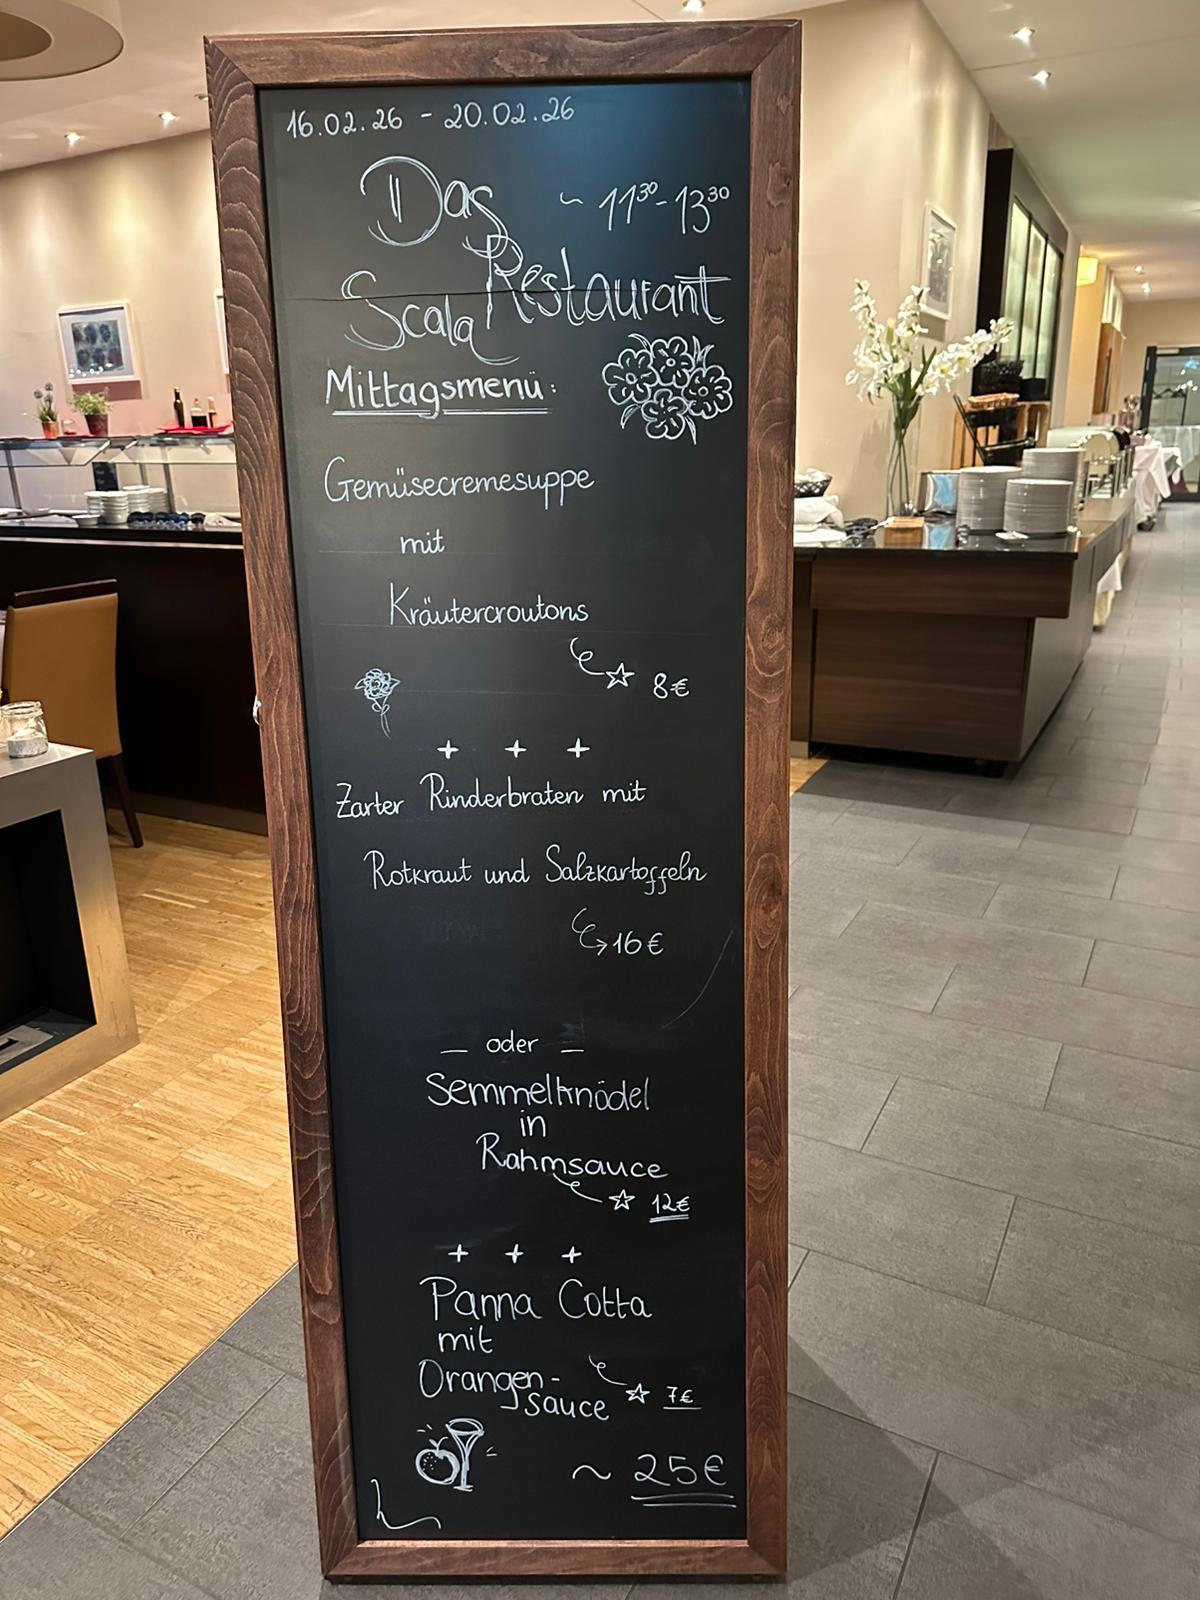 16.02.26 - 20.02.26
Das ~ 11³⁰-13³⁰
Scala Restaurant
Mittagsmenü:
Gemüsecremesuppe
mit
Kräutercroutons
8€
+ + +
Zarter Rinderbraten mit
Rotkraut und Salzkartoffeln
16€
— oder —
Semmelknödel
in
Rahmsauce
12€
+ + +
Panna Cotta
mit
Orangen-
sauce 7€
~ 25€